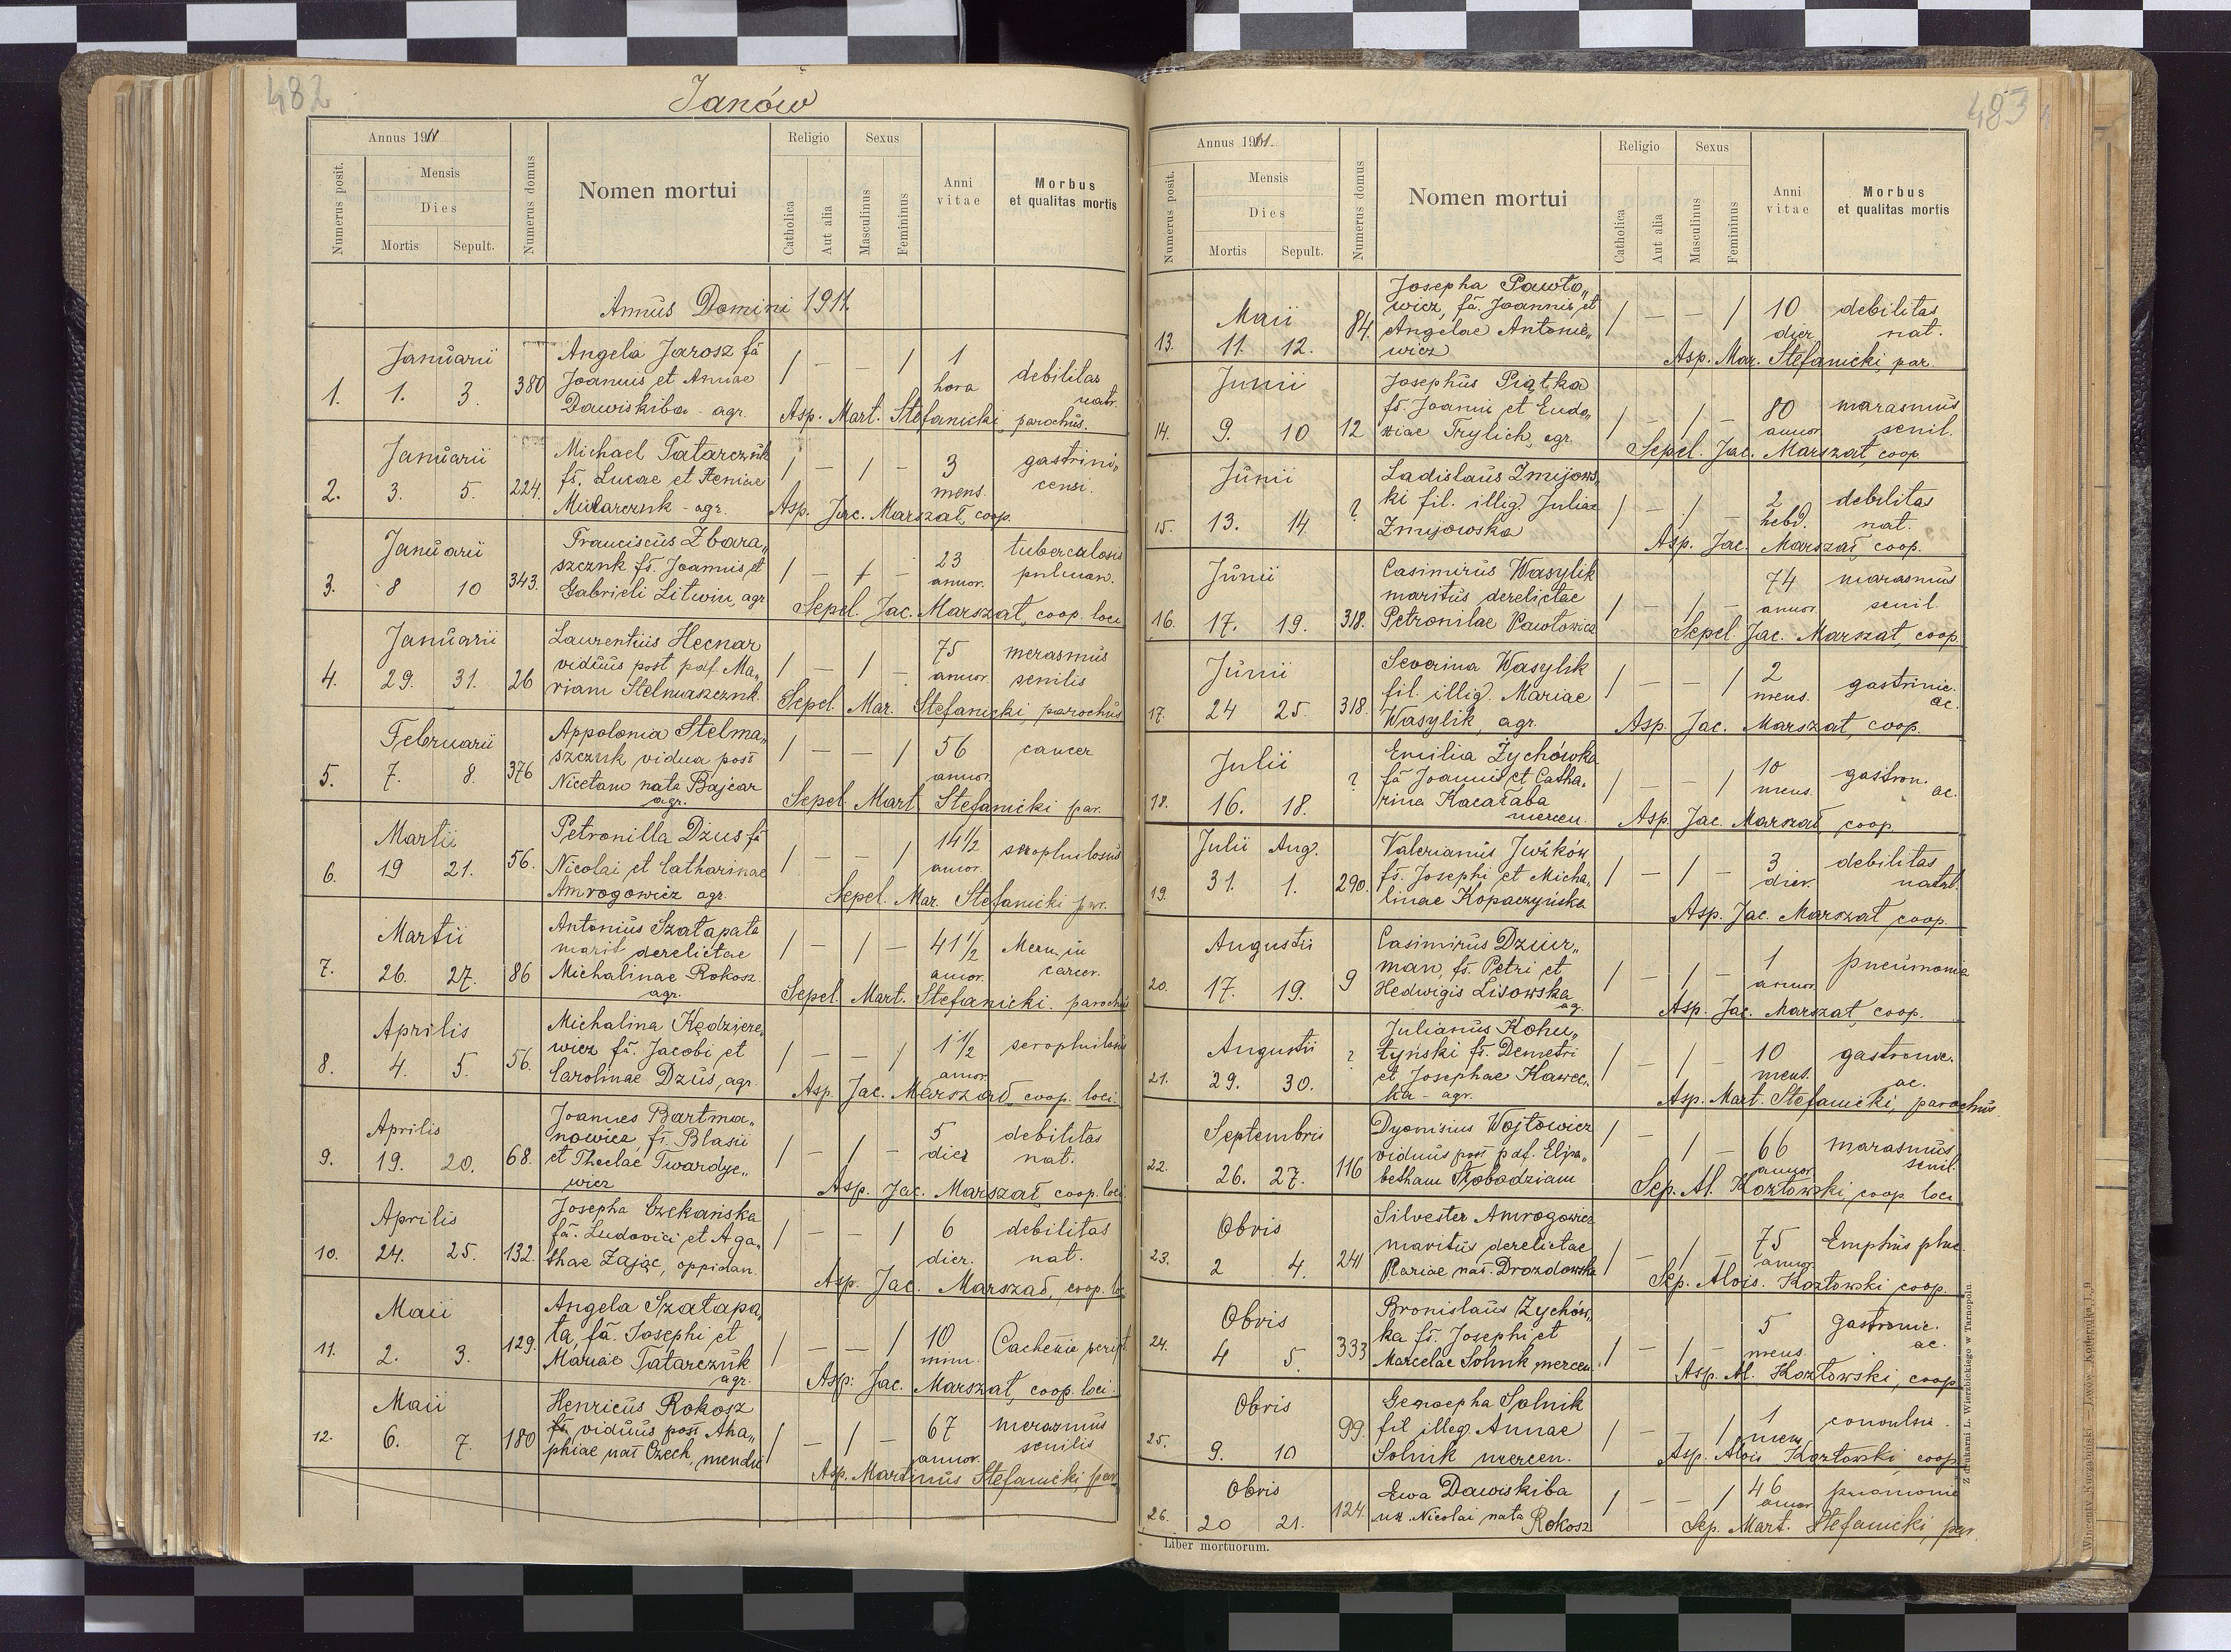 482
Janów
Annus 1911
Numerus posit.
Mensis
Dies
Mortis Sepult.
Numerus domus
Nomen mortui
Religio
Catholica
Aut alia
Sexus
Masculinus
Femininus
Anni
vitae
Morbus
et qualitas mortis
Annus Domini 1911
Januarii
1. 1. 3. 380
Angela Jarosz fa
Joannis et Annae
Dawiskiba - agr.
1 hora
debilitas
natr.
Asp. Mart. Stefanicki, parochus.
Januarii
2. 3. 5. 224.
Michael Tatarczuk
fs. Lucae et Xeniae
agr.
3 mens.
gastrini„
censi.
Asp. Jac. Marszał, coop.
Januarii
3. 8 10 343.
Franciscus Zbara„
szczuk fs. Joannis et
Gabrieli Litwin, agr
23 annor.
tuberculosis
pulmon.
Sepel. Jac. Marszał, coop. loci
Januarii
4. 29. 31. 26
Laurentius Hecnar
viduus post pdf. Ma„
riam Stelmaszczuk.
75 annor
merasmus
senilis
Sepel. Mar. Stefanicki, parochus
Februarii
5. 7. 8. 376
Appolonia Stelma„
szczuk vidua post
Nicetam nata Bajcar
agr.
56 annor.
cancer
Sepel Mart Stefanicki par.
Martii
6. 19 21. 56.
Petronilla Dżus fa
Nicolai et Catharinae
Amrogowicz agr.
14 1/2 annor.
scrophulosus
Sepel. Mar. Stefanicki par.
Martii
7. 26. 27. 86
Antonius Szałapata
marit derelictae
Michalinae Rokosz.
agr.
41 1/2 annor.
in
carcer.
Sepel. Mart. Stefanicki. parochus
Aprilis
8. 4. 5. 56.
Michalina Kędziere„
wicz fa. Jacobi et
Carolinae Dzus, agr.
1 1/2 annor.
scrophulosus
Asp. Jac. Marszał coop. loci.
Aprilis
9. 19. 20. 68.
Joannes Bartma„
nowicz, fs. Blasii
et Theclae Twardye„
wicz
5 dier
debilitas
nat.
Asp. Jac. Marszał coop. loci
Aprilis
10. 24. 25. 132.
Josepha Czekańska
fa. Ludovici et Aga„
thae Zając, oppidan.
6 dier.
debilitas
nat.
Asp. Jac. Marszał, coop. loc
Maii
11. 2. 3. 129.
Angela Szałapa„
ta, fa. Josephi et
Mariae Tatarczuk
agr.
10
Asp: Jac. Marszał, coop. loci.
Maii
12. 6. 7. 180
Henricus Rokosz
viduus post Aha„
phiae nat Czech, mendic
67 annor.
merasmus
senilis
Asp. Martinus Stefanicki, par
483
Annus 1911.
Numerus posit.
Mensis
Dies
Mortis Sepult.
Numerus domus
Nomen mortui
Religio
Catholica
Aut alia
Sexus
Masculinus
Femininus
Anni
vitae
Morbus
et qualitas mortis
Maii
13. 11. 12. 84.
Josepha Pawło„
wicz, fa. Joannis et
Angelae Antonie„
wicz
10 dier
debilitas
nat.
Asp. Mar. Stefanicki, par.
Junii
14. 9. 10 12
Josephus Piątka
fs. Joanni et Eudo„
xiae Trylich, agr.
80 annor.
marasmus
senil.
Sepel. Jac. Marszał, coop
Junii
15. 13. 14. ?
Ladislaus Zmijows„
ki fil. illig. Juliae
Zmijowska
2 hebd.
debilitas
nat.
Asp. Jac. Marszał, coop.
Junii
16. 17. 19. 318.
Casimirus Wasylik
maritus derelictae
Petronilae Pawłowicz
74 annor.
marasmus
senil.
Sepel. Jac. Marszał, coop
Junii
17. 24 25. 318.
Severina Wasylik
fil. illig. Mariae
Wasylik, agr.
2 mens.
gastrinic.
ac.
Asp. Jac. Marszał, coop.
Julii
18. 16. 18. ?
Emilia Żychówka
fa Joannis et Catha„
rina Kacałaba
mercen.
10 mens.
gastron.
ac.
Asp. Jac. Marszał coop
Julii Aug.
19. 31. 1. 290.
Valerianus Juźków
fs. Josephi et Micha„
linae Kopaczyńska
3 dier.
debilitas
natal.
Asp. Jac. Marszał coop.
Augusti
20. 17. 19. 9
Casimirus Dziur„
man, fs. Petri et
Hedwigis Lisowska
ag.
1 annor.
pneumonia
Asp. Jac. Marszał, coop.
Augusti
21. 29. 30. ?
Julianus Kohu„
tyński fs. Demetri
et Josephae Kawec„
ka - agr.
10 mens.
ac.
Asp. Mart. Stefanicki, parochus
Septembris
22. 26. 27. 116
Dyonisius Wojtowicz
viduus post pdf. Elisa„
betham Słobodziam
66 annor
marasmus
senil.
Sep. Al. Kozłowski, coop loci
Obris
23. 2 4. 241
Silvester Amrogowicz
maritus derelictae
Mariae nat. Drozdowska
75 annor
Sep. Alois. Kozłowski coop.
Obris
24. 4 5. 333
Bronislaus Zychów„
ka fs. Josephi et
Marcelae Solnik mercen.
5 mens.
gastronic.
ac.
Asp. Al. Kozłowski, coop
Obris
25. 9. 10 99.
Genoepha Solnik
fil illeg. Annae
Solnik mercen.
1 mens
convulsi.
Asp. Alois Kozłowski, coop
Obris
26. 20 21. 124.
Ewa Dawiskiba
ux. Nicolai nata
Rokosz
46 annor
Sep. Mart. Stefanicki, par
Liber mortuorum.
Z drukarni L. Wierzbickiego w Tarnopolu.